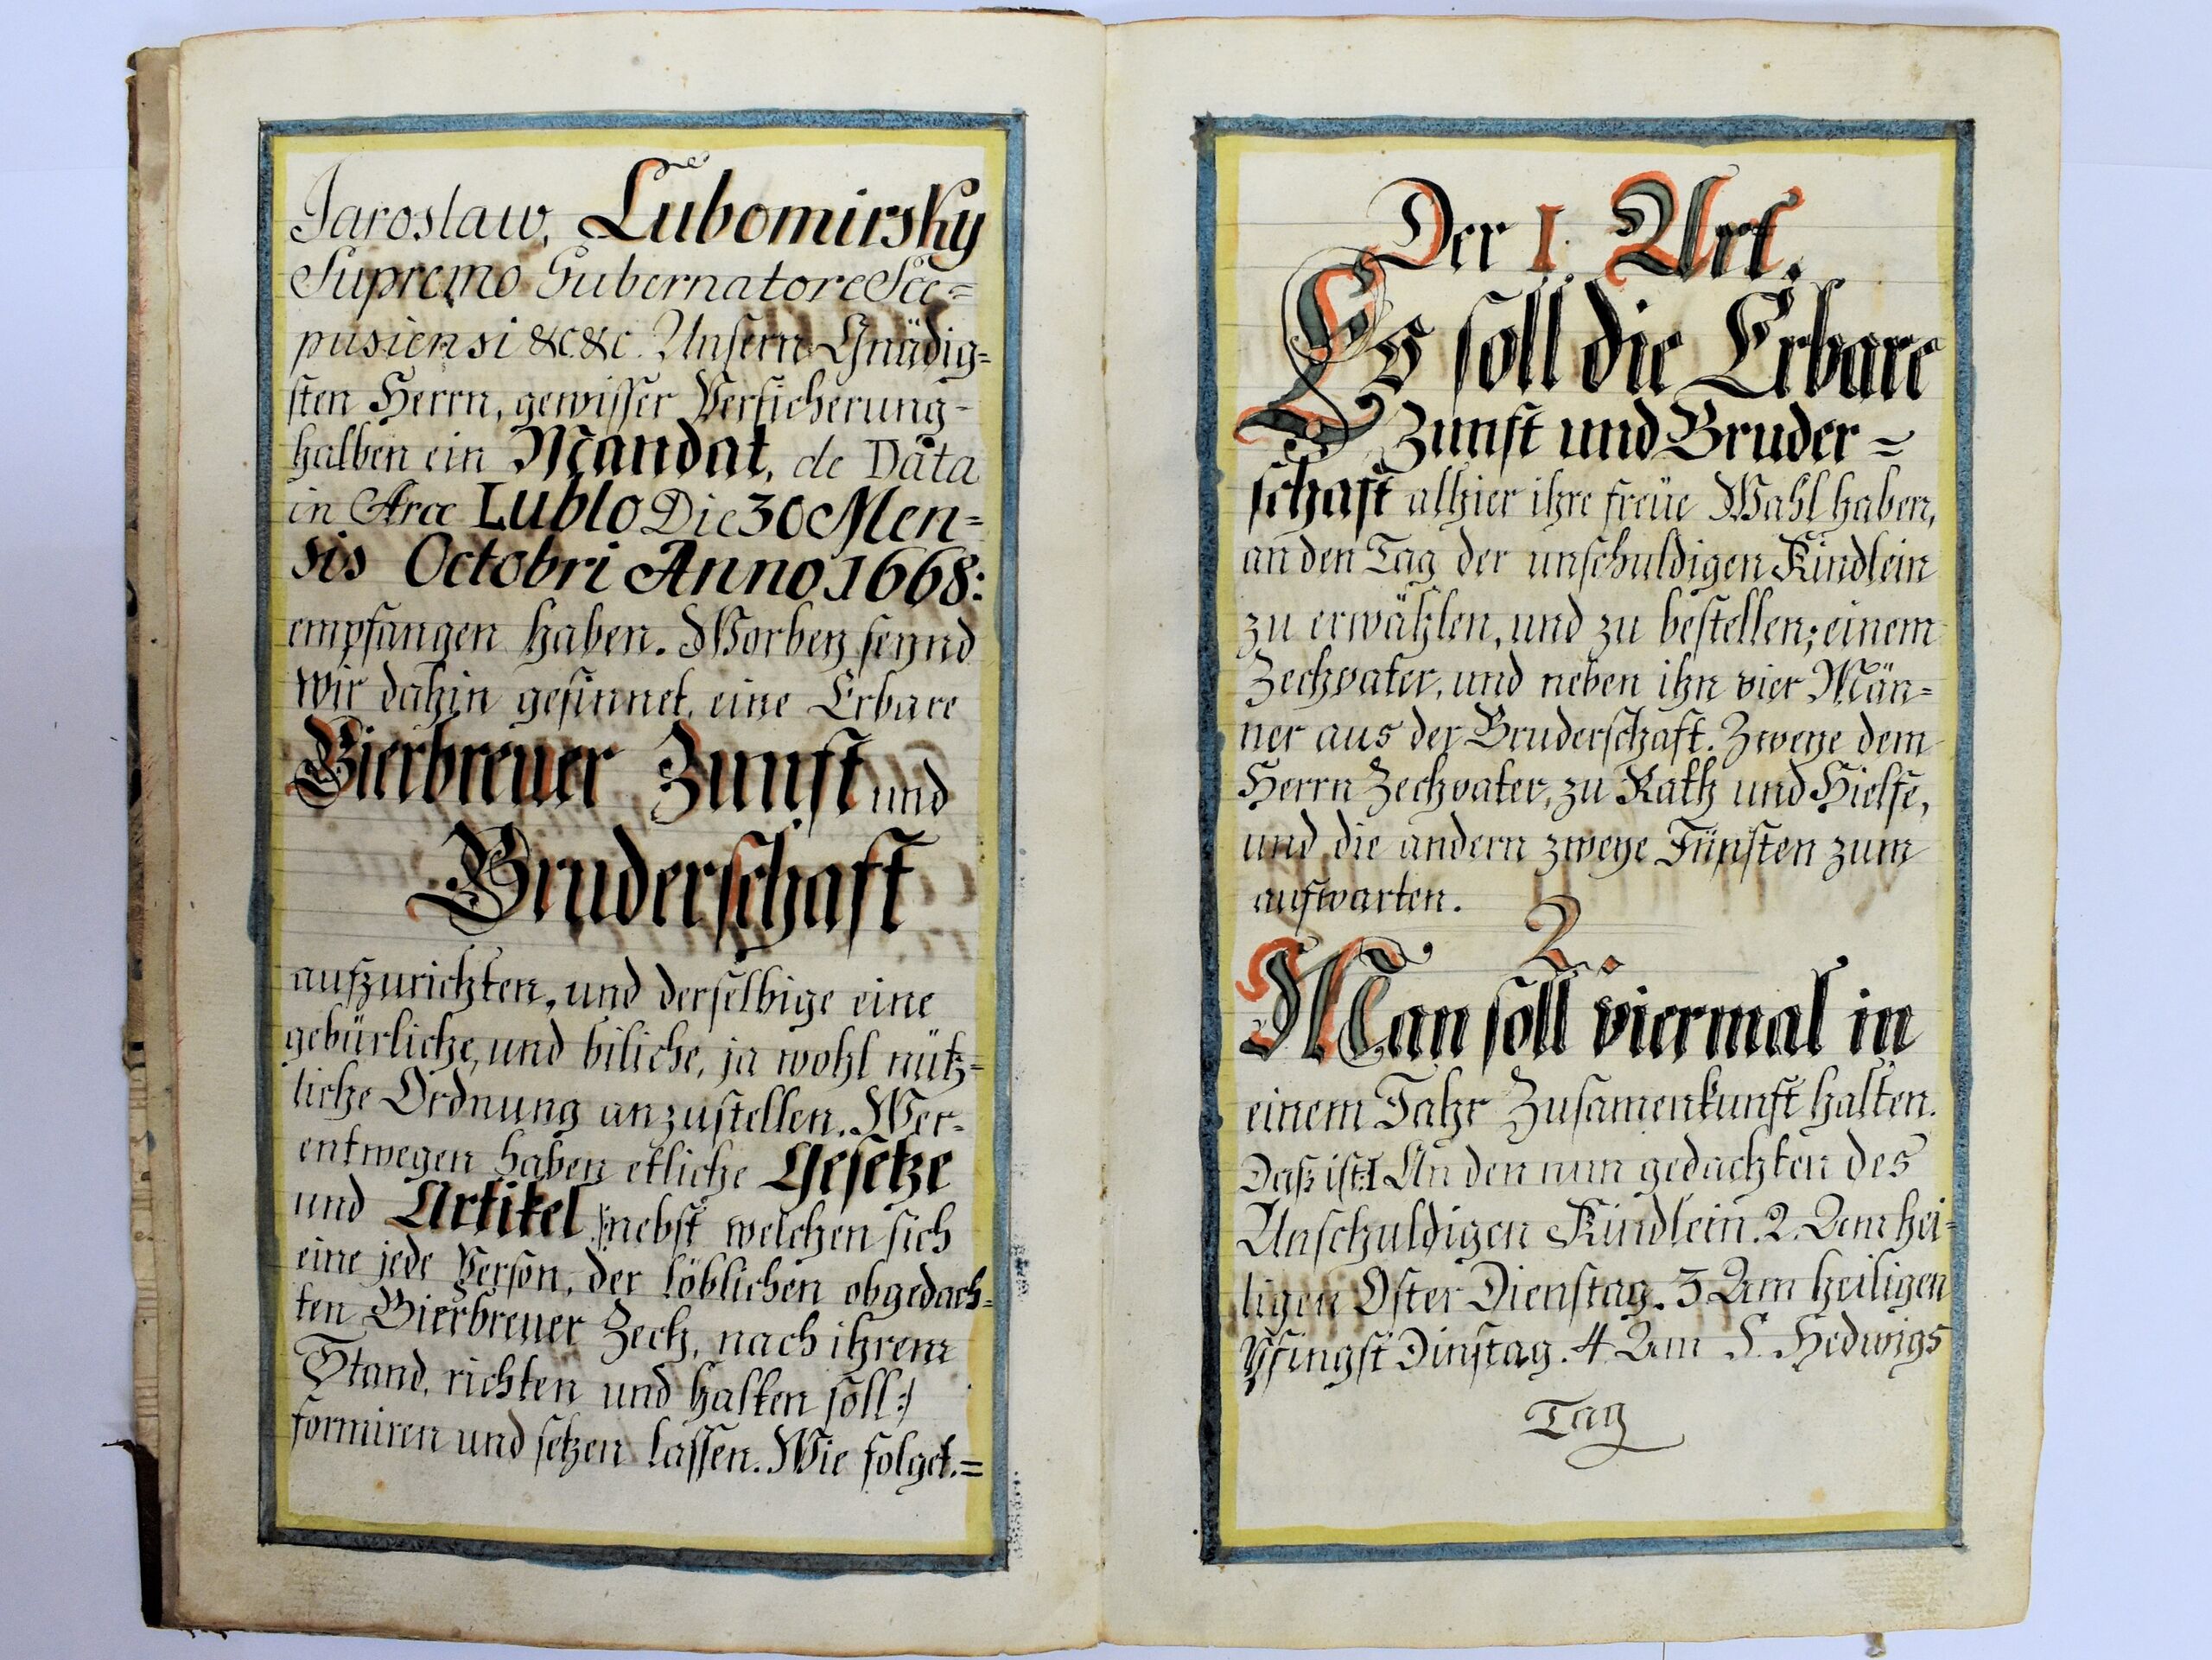 Jaroslaw, Lubomirsky
Supremo Gubernatore Sce=
pusiensi &c &c. Unsern Gnädig=
sten Herrn, gewisser Versicherung-
halben ein Mandat, de Data
in Arce Lublo Die 30 Men=
sis Octobri Anno 1668:
empfangen haben. Worbey seynd
wir dahin gesinnet, eine Erbare
Bierbreuer Zunft und
Bruderschaft
aufzurichten, und derselbige eine
gebürliche, und biliche, ja wohl nütz=
liche Ordnung anzustellen. Der-
entwegen haben etliche Gesetze
und Artikel /:nebst welchen sich
eine jede Person, der löblichen obgedach=
ten Bierbreuer Zech, nach ihrem
Stand, richten und halten soll:/
formiren und setzen lassen. Wie folget.=
Der I. Art.
Es soll die Erbare
Zunft und Bruder=
schaft alhier ihre freüe Wahl haben,
an den Tag der unschuldigen Kindlein
zu erwählen, und zu bestellen; einem
Zechvater, und neben ihn vier Män=
ner aus der Bruderschaft. Zweye dem
Herrn Zechvater, zu Rath und Hielfe,
und die andern zweye Jüngsten zum
aufwarten.
2.
Man soll viermal in
einem Jahr Zusamenkunft halten.
Daß ist: 1 An den nun gedachten des
Unschuldigen Kindlein. 2. Am hei=
ligen Oster Dienstag. 3 Am heiligen
Pfingst Dinstag. 4. Am S. Hedwigs
Tag